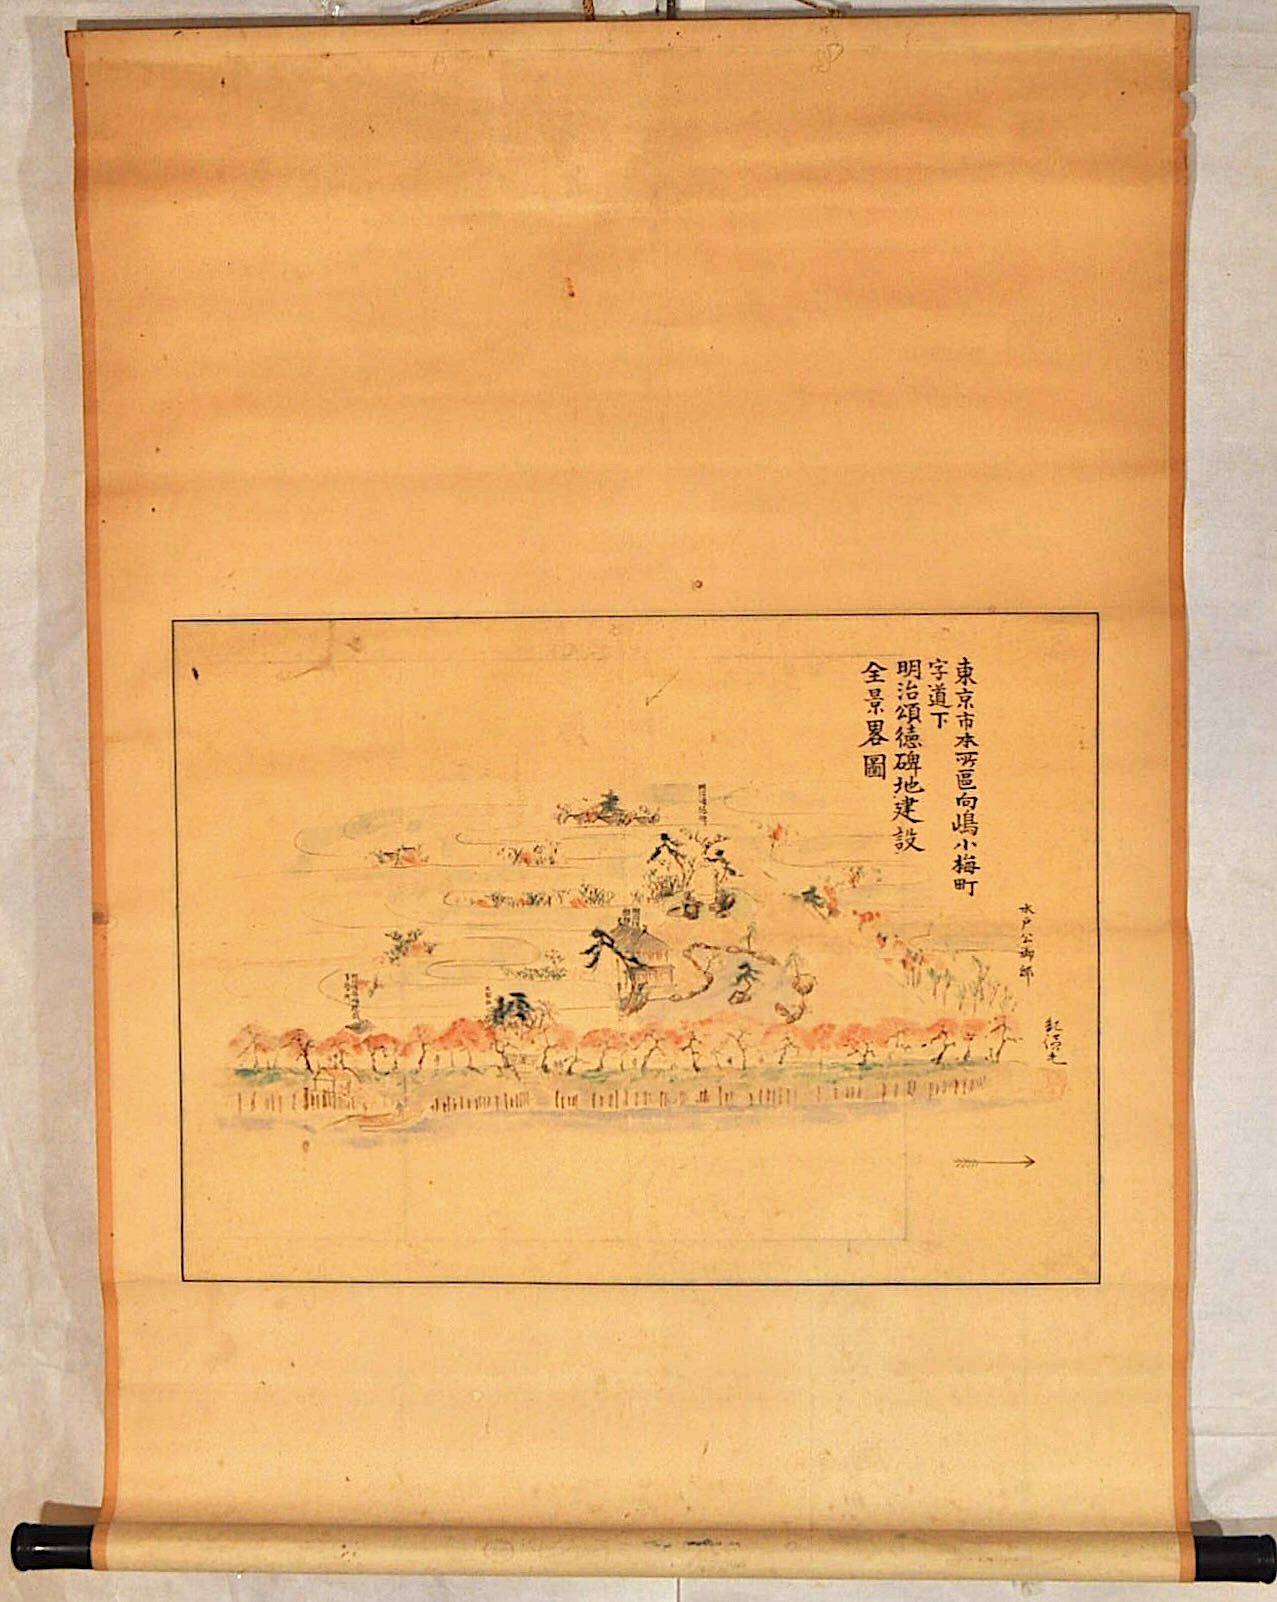 東京市本所區向嶋小梅町
字道下
明治頌德碑地建設
全景畧圖
水戸公御邸